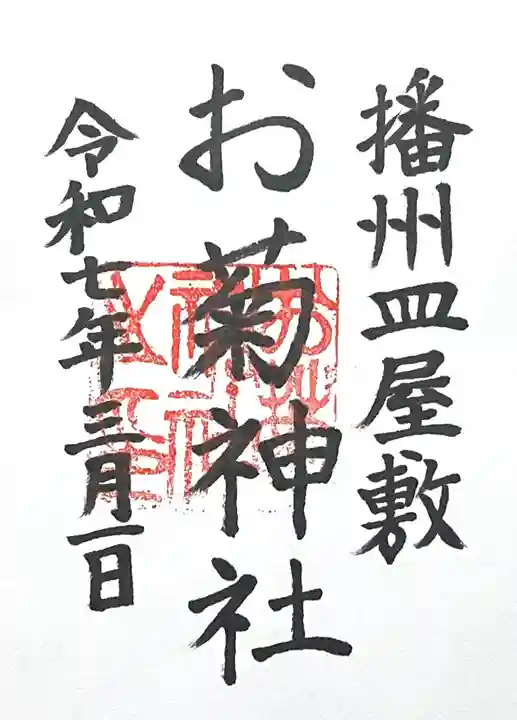 播州皿屋敷
お菊神社
令和七年三月一日